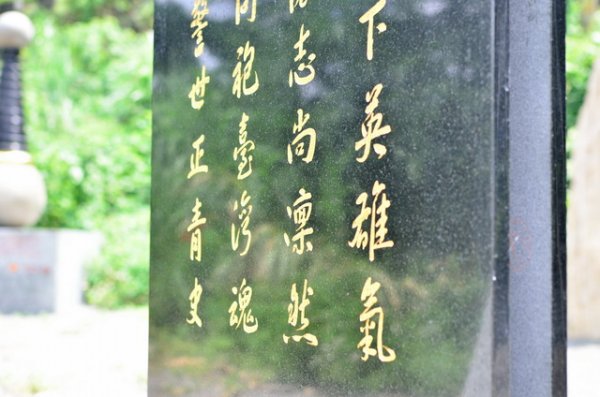 下英雄氣
志尚凜然
同袍臺灣魂
警世正青史